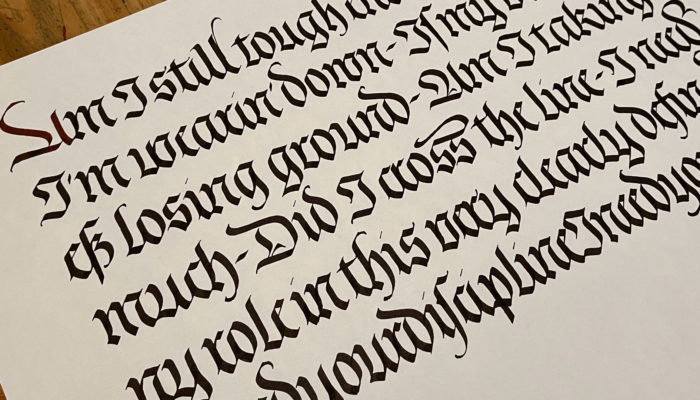 Am I still tough
I'm wearin' down - If my
eß losing ground - Am I taking
much - Did I cross the line - I need
my role in this very clearly defin
dyourdisciplineIneedyo